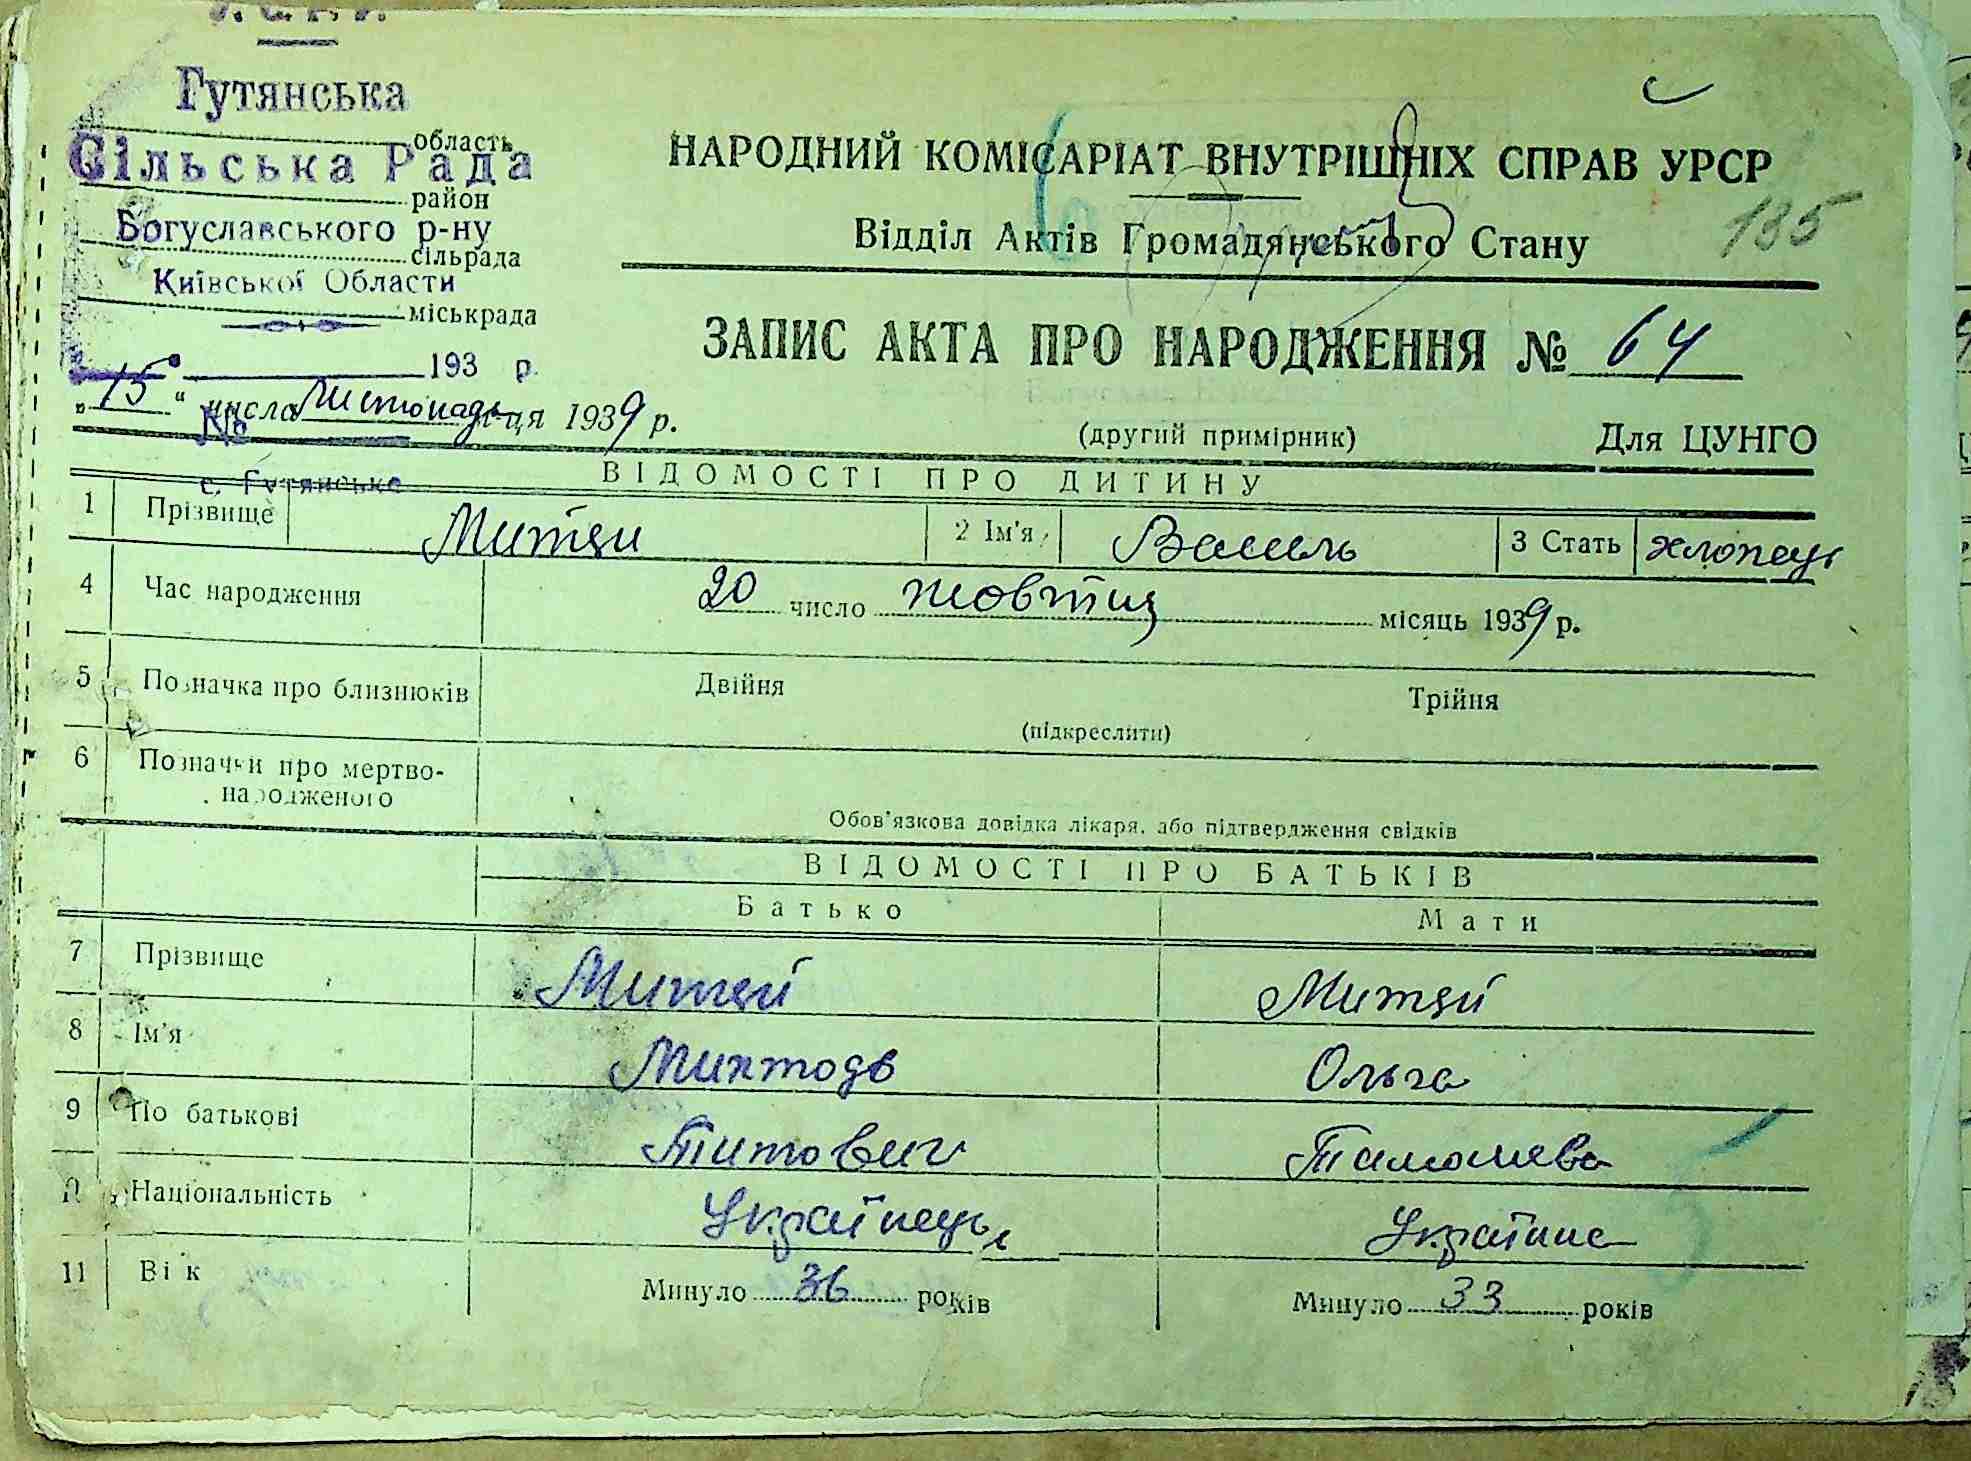 Гутянська
область
Сільська Рада
район
Богуславського р-ну
сільрада
Київської Области
міськрада
193 р.
„15“ числа Листопад ця 1939 р.
№
с. Гутянське
НАРОДНИЙ КОМІСАРІАТ ВНУТРІШНІХ СПРАВ УРСР
Відділ Актів Громадянського Стану
185
ЗАПИС АКТА ПРО НАРОДЖЕННЯ № 64
(другий примірник) Для ЦУНГО
ВІДОМОСТІ ПРО ДИТИНУ
1 Прізвище Митяй 2 Ім'я Василь 3 Стать хлопець
4 Час народження 20 число жовтня місяць 1939 р.
5 Позначка про близнюків Двійня Трійня
(підкреслити)
6 Позначки про мертво-
народженого
Обов'язкова довідка лікаря, або підтвердження свідків
ВІДОМОСТІ ПРО БАТЬКІВ
Батько Мати
7 Прізвище Митяй Митяй
8 Ім'я Ольга
9 По батькові Титович
Національність Українець Українка
11 Вік Минуло 36 років Минуло 33 років